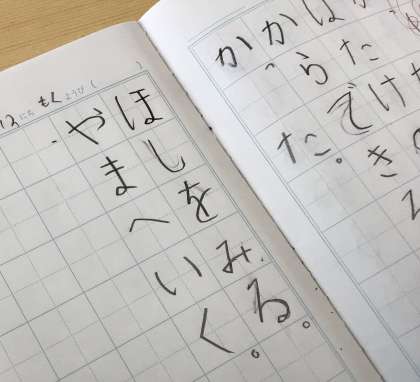 12にち もくようび ( )
はたけ
からでき
かった。
ほしをみる。
やまへいく。